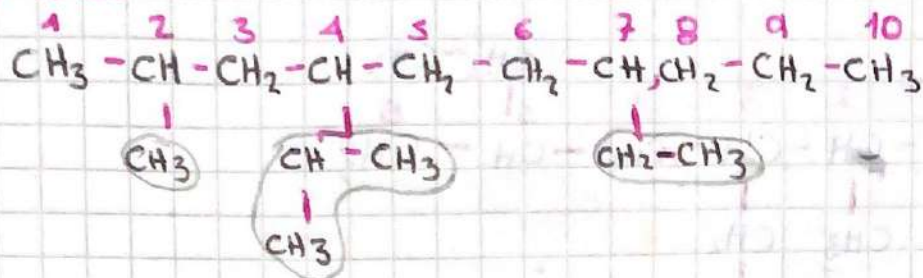 1 2 3 4 5 6 7 8 9 10
CH3-CH-CH2-CH-CH2-CH2-CH,CH2-CH2-CH3
CH3 CH-CH3 CH2-CH3
CH3